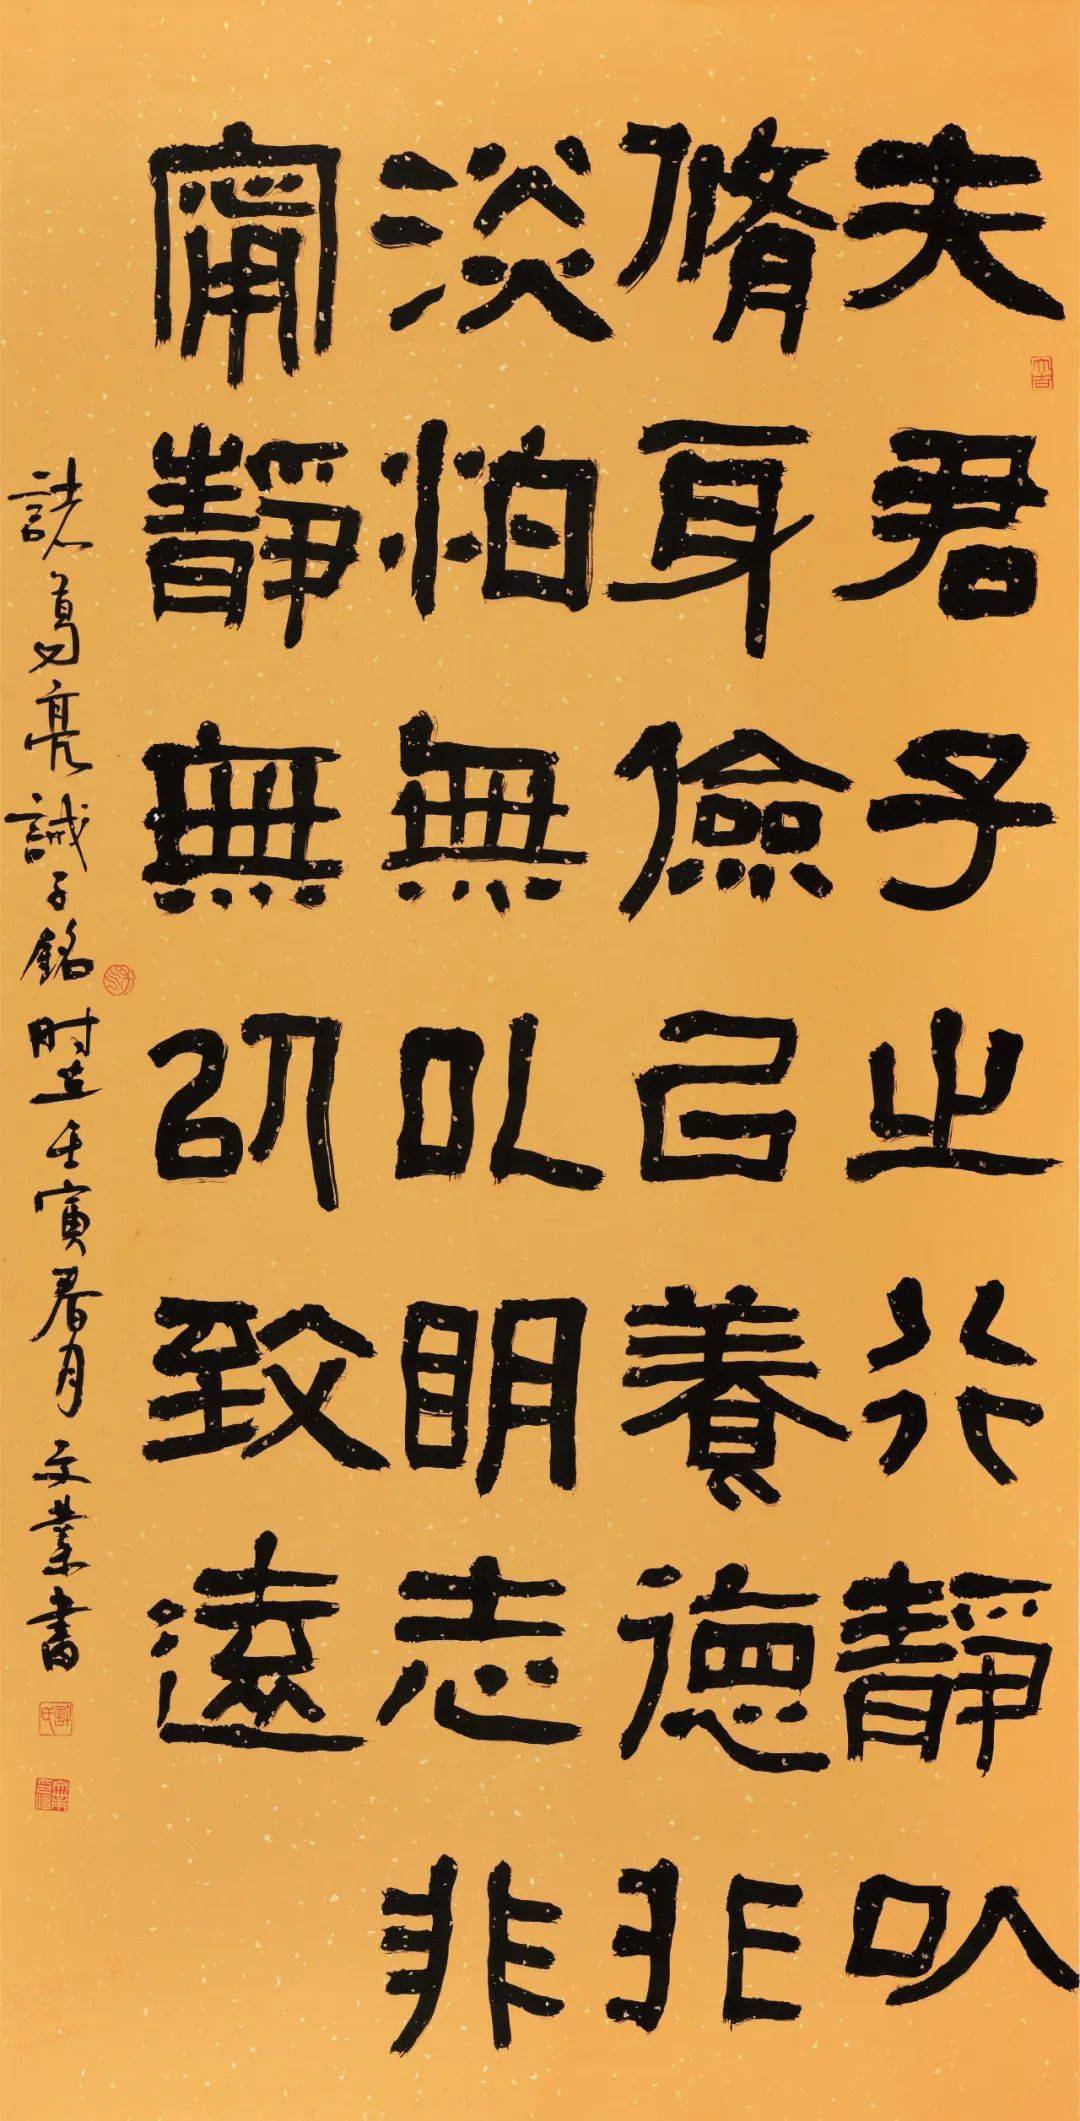 夫君子之行靜以
脩身儉己養德非
淡怕無以明志非
甯靜無以致遠
諸葛亮誡子銘 时在壬寅春月 文業書